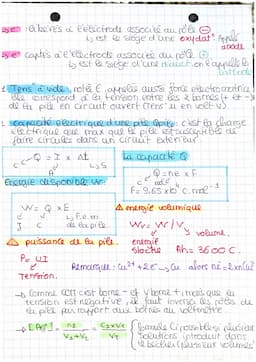 e⁻ libérés à l'électrode associée au pôle ⊖
↳ est le siège d'une oxydat° Appelé anode
e⁻ captés à l'électrode associée au pôle ⊕
↳ est le siège d'une réduction et appelé la cathode
Tens° à vide, notée E, appelée aussi force électromotrice
elle correspond à la tension entre les 2 bornes + et -
de la pile en circuit ouvert (tens° en volt V)
Capacité électrique d'une pile : c'est la charge
électrique que max que la pile est susceptible de
faire circuler dans un circuit extérieur
Q = I x Δt
C A S
La capacité Q
Q = ne x F
F = 9.65 x 10⁴ C.mol⁻¹
Energie disponible W
W = Q x E
J C f.e.m de la pile
⚠ énergie volumique
Wv = W / V
volume
énergie stockée Ah = 3600 C.
⚠ puissance de la pile
P = U.I
tension
Remarque : Cu²⁺ + 2e⁻ → Cu alors ne = 2 x n(Cu)
→ Comme COM c'est borne - et V borne + mais que la
tension est négative, il faut inverser les pôles de
la pile par rapport aux bornes du voltmètre